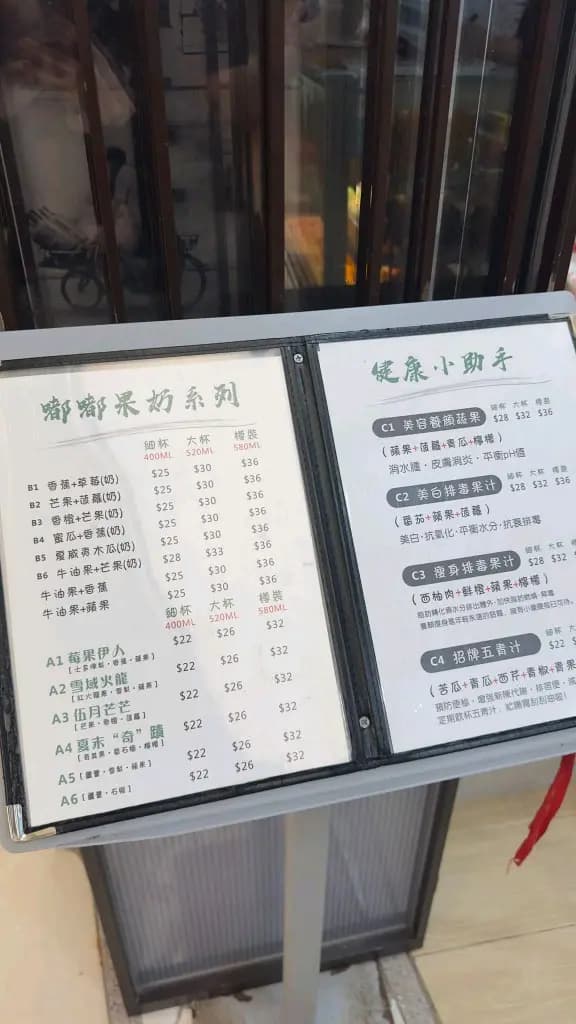 嘟嘟果奶系列
細杯 大杯 樽裝
400ML 520ML 580ML
B1 香蕉+草莓(奶) $25 $30 $36
B2 芒果+菠蘿(奶) $25 $30 $36
B3 香橙+芒果(奶) $25 $30 $36
B4 蜜瓜+香蕉(奶) $25 $30 $36
B5 夏威夷木瓜(奶) $25 $30 $36
B6 牛油果+芒果(奶) $28 $33 $36
牛油果+香蕉 $25 $30 $36
牛油果+蘋果 $25 $30 $36
細杯 大杯 樽裝
400ML 520ML 580ML
A1 莓果伊人 $22 $26 $32
[士多啤梨·香蕉·蘋果]
A2 雪域火龍 $22 $26 $32
[紅火龍果·雪梨·蘋果]
A3 伍月芒芒 $22 $26 $32
[芒果·香橙·菠蘿]
A4 夏末“奇”蹟 $22 $26 $32
[奇異果·番石榴·檸檬]
A5 [蘆薈·雪梨·蘋果] $22 $26 $32
A6 [蘆薈·石榴] $22 $26 $32
健康小助手
細杯 大杯 樽裝
C1 美容養顏蔬果 $28 $32 $36
(蘋果+菠蘿+青瓜+檸檬)
消水腫·皮膚消炎·平衡pH值
細杯 大杯 樽裝
C2 美白排毒果汁 $28 $32 $36
(番茄+蘋果+菠蘿)
美白·抗氧化·平衡水分·抗衰排毒
細杯 大杯
C3 瘦身排毒果汁 $28 $32
(西柚肉+鮮橙+蘋果+檸檬)
細杯 大
C4 招牌五青汁 $22
(苦瓜+青瓜+西芹+青椒+青果
預防便秘·增強新陳代謝·排宿便·減
定期飲杯五青汁